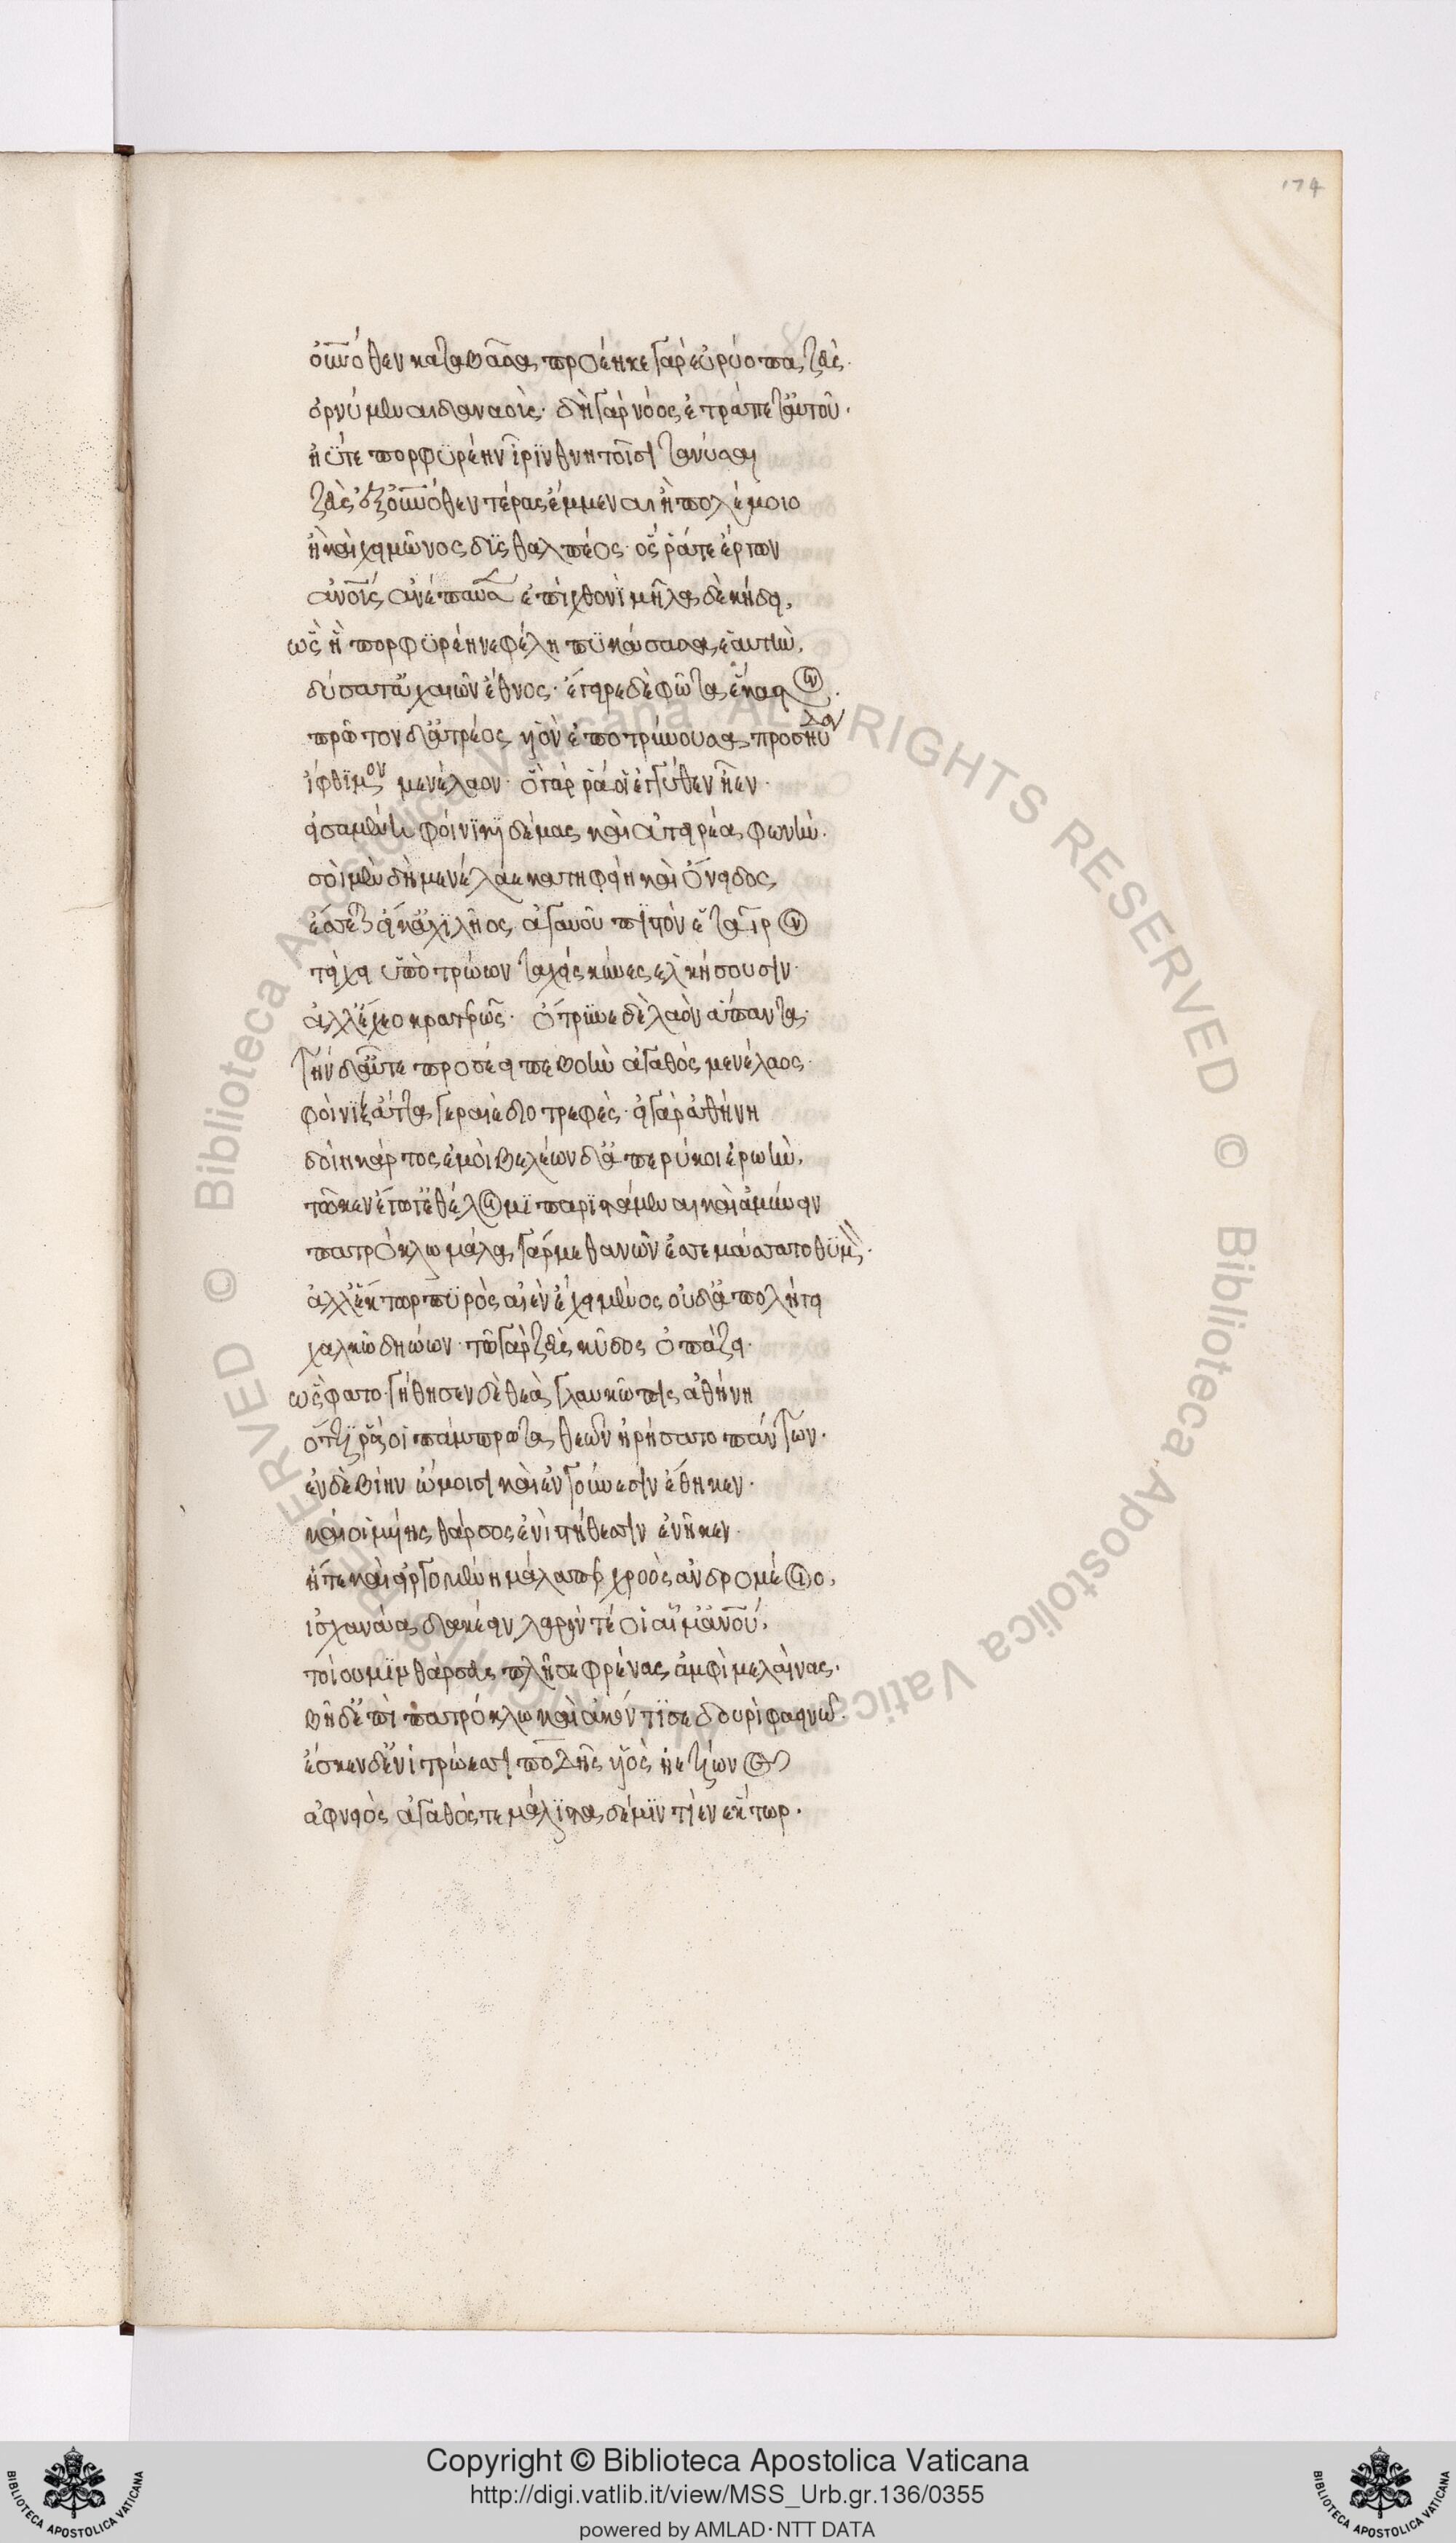 174
οὐρανόθεν καταβᾶσα· προέηκε γὰρ εὐρύοπα ζεὺς·
ὀρνύμεναι δαναοὺς· δὴ γὰρ νόος ἐτράπετ' αὐτοῦ·
ἠΰτε πορφυρέην ἶριν θνητοῖσι τανύσσῃ
ζεὺς ἐξ οὐρανόθεν τέρας ἔμμεναι ἢ πολέμοιο
ἢ καὶ χειμῶνος δυσθαλπέος· ὅς ῥά τε ἔργων
ἀνους ἀνέπαυσεν ἐπὶ χθονὶ μῆλα δὲ κήδει·
ὣς ἣ πορφυρέη νεφέλη πυκάσασα ἓ αυτὴν·
δύσατ' ἀχαιῶν ἔθνος· ἔγειρε δὲ φῶτα ἕκαστον·
πρῶτον δ' ἀτρέος υἱὸν ἐποτρύνουσα προσηύδα
ἴφθιμον μενέλαον· ὃ γάρ ῥά οἱ ἐγγύθεν ἦεν·
εἰσαμένη φοίνικι δέμας καὶ ἀτειρέα φωνὴν·
σοὶ μὲν δὴ μενέλαε κατηφείη καὶ ὄνειδος
ἔσσετ' εἴ κ' ἀχιλῆος ἀγαυοῦ πιστὸν ἑταῖρον
τείχει ὕπο τρώων ταχέες κύνες ἑλκήσουσιν·
ἀλλ' ἔχεο κρατερῶς· ὄτρυνε δὲ λαὸν ἅπαντα·
τὴν δ' αὖτε προσέειπε βοὴν ἀγαθὸς μενέλαος·
φοῖνιξ ἄττα γεραιὲ διοτρεφὲς· εἰ γὰρ ἀθήνη
δοίη κάρτος ἐμοὶ βελέων δ' ἀπερύκοι ἐρωὴν·
τῶ κεν ἔγωγ' ἐθέλοιμι παριστάμεναι καὶ ἀμύνειν
πατρόκλω μάλα γάρ με θανὼν ἐσεμάσσατο θυμὸν·
ἀλλ' ἕκτωρ πυρὸς αἰὲν ἔχει μένος οὐδ' ἀπολήγει
χαλκῶ δηϊόων· τῶ γὰρ ζεὺς κῦδος ὀπάζει·
ὣς φάτο· γήθησεν δὲ θεὰ γλαυκῶπις ἀθήνη
ὅττι ῥά οἱ πάμπρωτα θεῶν ἠρήσατο πάντων·
ἐν δὲ βίην ὤμοισι καὶ ἐν γούνεσιν ἔθηκεν·
καί οἱ μυίης θάρσος ἐνὶ στήθεσσιν ἐνῆκεν·
ἥ τε καὶ εἰργομένη μάλα περ χροὸς ἀνδρομέοιο·
ἰσχανάα δακέειν λαρόν τέ οἱ αἷμ' ἀνου·
τοίου μιν θάρσευς πλῆσε φρένας ἀμφὶ μελαίνας·
βῆ δ' ἐπὶ πατρόκλω καὶ ἀκόντισε δουρὶ φαεινῶ·
ἔσκεν δ' ἐνὶ τρώεσσι ποδῆς υἱὸς ἠετίωνος
ἀφνειὸς ἀγαθός τε μάλιστα δέ μιν τίεν ἕκτωρ·
Copyright © Biblioteca Apostolica Vaticana
http://digi.vatlib.it/view/MSS_Urb.gr.136/0355
powered by AMLAD·NTT DATA